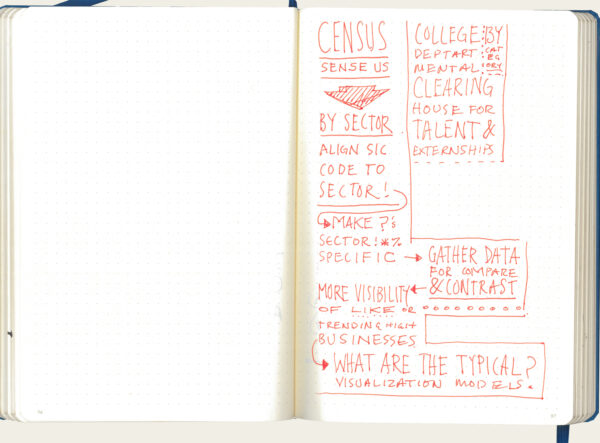 CENSUS
SENSE US
BY SECTOR
ALIGN SIC
CODE TO
SECTOR!
MAKE ?'s
SECTOR!*%
SPECIFIC
GATHER DATA
FOR COMPARE
& CONTRAST
MORE VISIBILITY
OF LIKE OR
TRENDING HIGH
BUSINESSES
WHAT ARE THE TYPICAL?
VISUALIZATION MODELS.
COLLEGE BY
DEPTART CAT
EG
MENTAL ORY
CLEARING
HOUSE FOR
TALENT &
EXTERNSHIPS